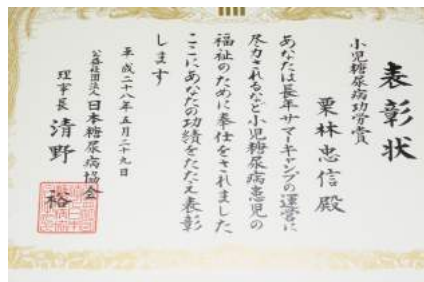 表彰状
小児糖尿病功労賞
栗林忠信殿
あなたは長年サマーキャンプの運営に
尽力されるなど小児糖尿病患児の
福祉のために奉仕をされました
ここにあなたの功績をたたえ表彰
します
平成二十八年五月二十九日
公益社団法人日本糖尿病協会
理事長 清野 裕